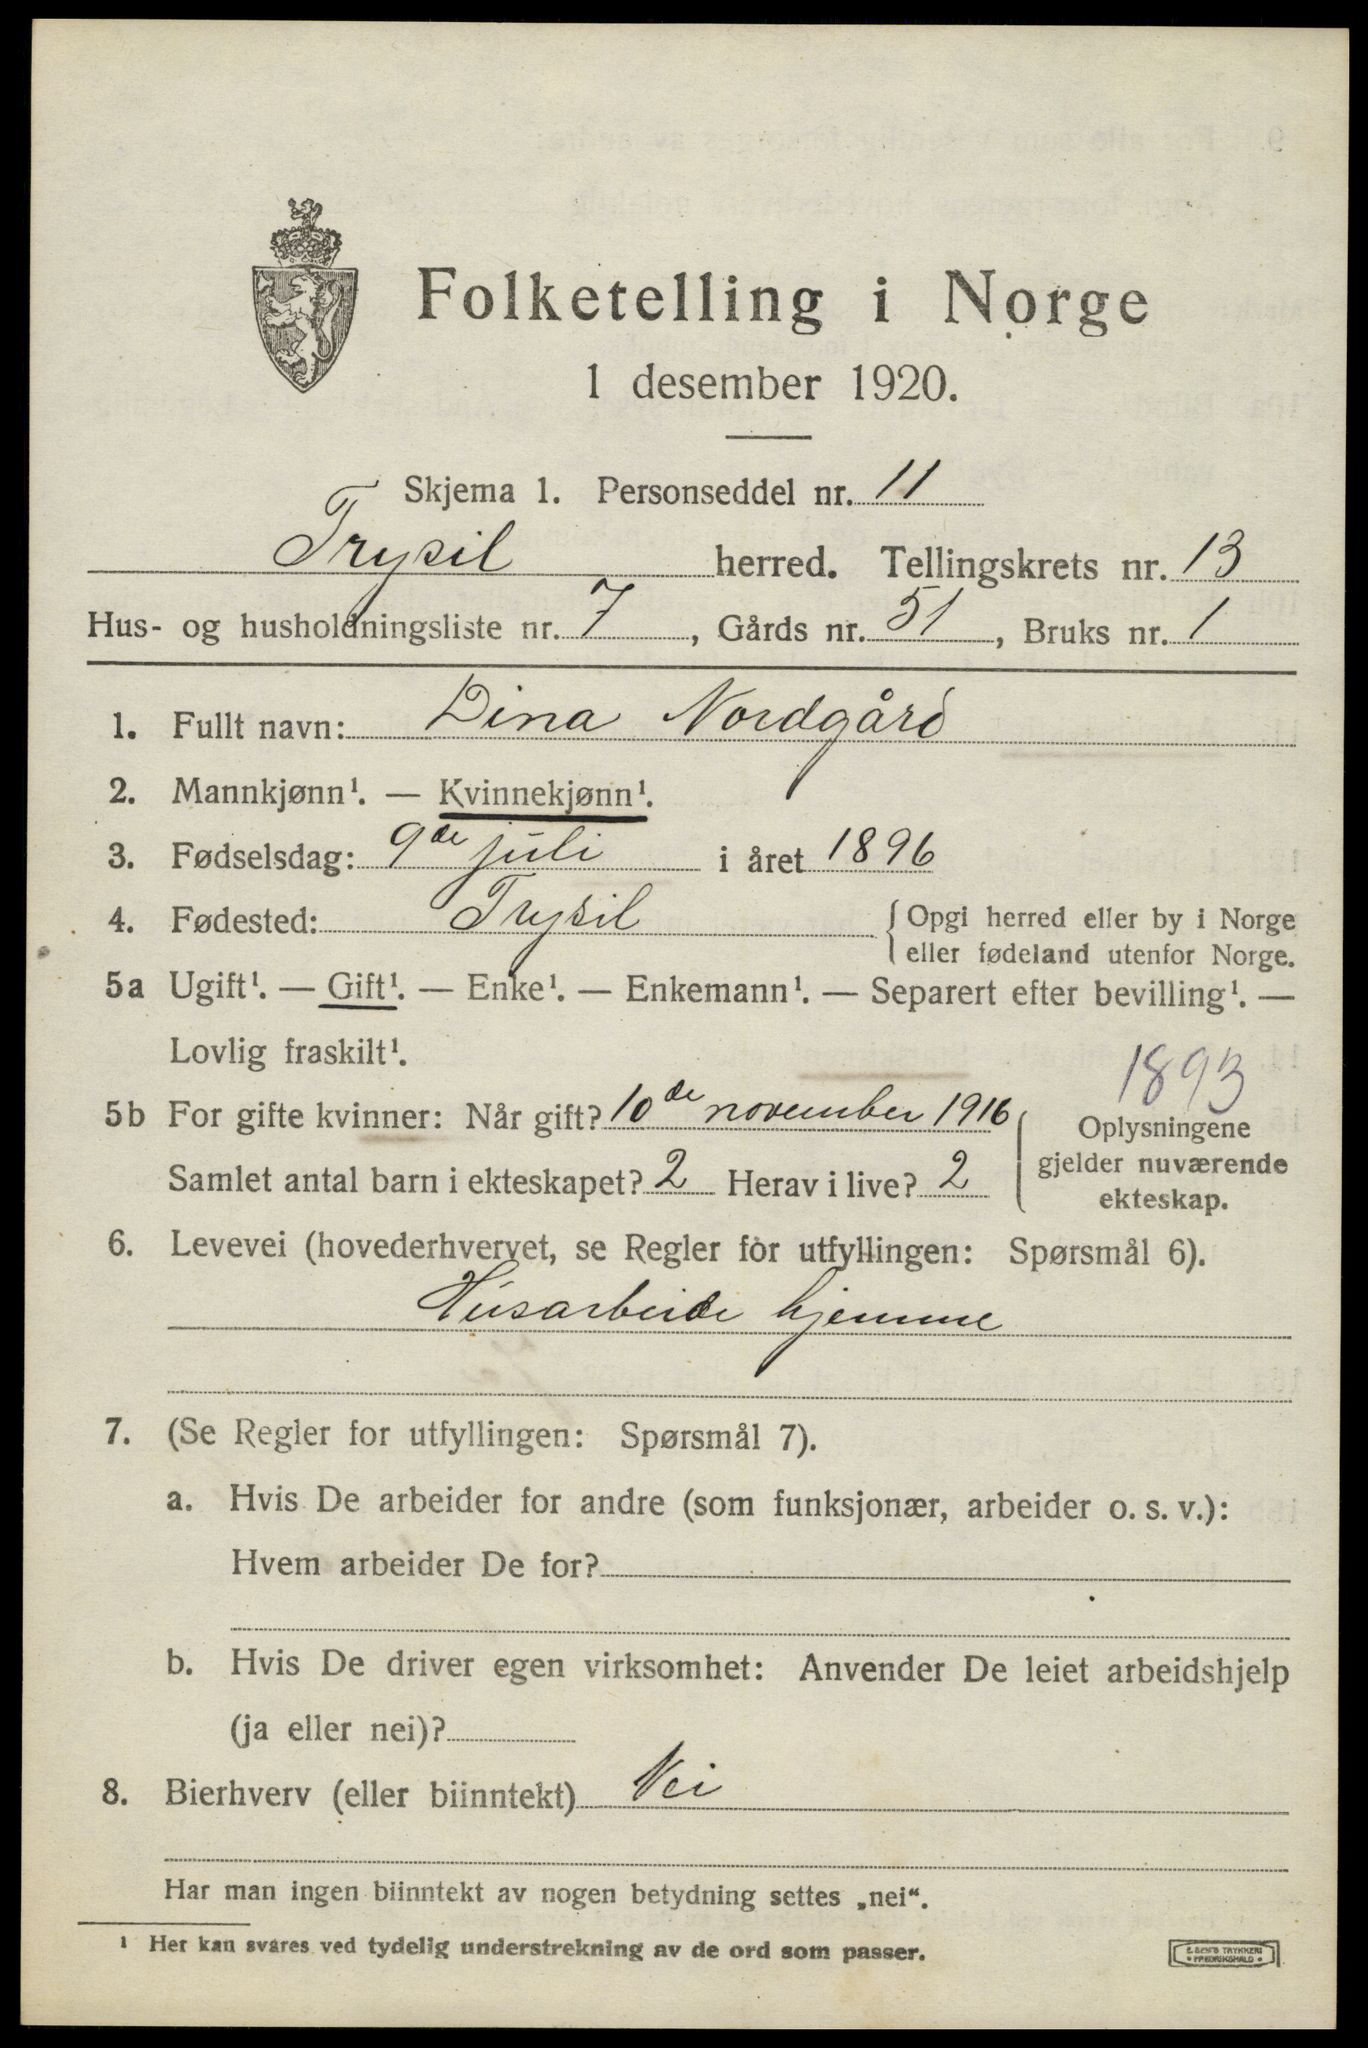 Folketelling i Norge
1 desember 1920.
Skjema 1. Personseddel nr. 11
Trysil herred. Tellingskrets nr. 13
Hus- og husholdningsliste nr. 7, Gårds nr. 51, Bruks nr. 1
1. Fullt navn: Dina Nordgård
2. Mannkjønn¹. — Kvinnekjønn¹.
3. Fødselsdag: 9de juli i året 1896
4. Fødested: Trysil { Opgi herred eller by i Norge
eller fødeland utenfor Norge.
5a Ugift¹. — Gift¹. — Enke¹. — Enkemann¹. — Separert efter bevilling¹. —
Lovlig fraskilt¹.
1893
5b For gifte kvinner: Når gift? 10de november 1916
Samlet antal barn i ekteskapet? 2 Herav i live? 2
Oplysningene
gjelder nuværende
ekteskap.
6. Levevei (hovederhvervet, se Regler for utfyllingen: Spørsmål 6).
Husarbeide hjemme
7. (Se Regler for utfyllingen: Spørsmål 7).
a. Hvis De arbeider for andre (som funksjonær, arbeider o. s. v.):
Hvem arbeider De for?
b. Hvis De driver egen virksomhet: Anvender De leiet arbeidshjelp
(ja eller nei)?
8. Bierhverv (eller biinntekt) Nei
Har man ingen biinntekt av nogen betydning settes „nei“.
¹ Her kan svares ved tydelig understrekning av de ord som passer.
E. SEM'S TRYKKERI
• FREDRIKSHALD •